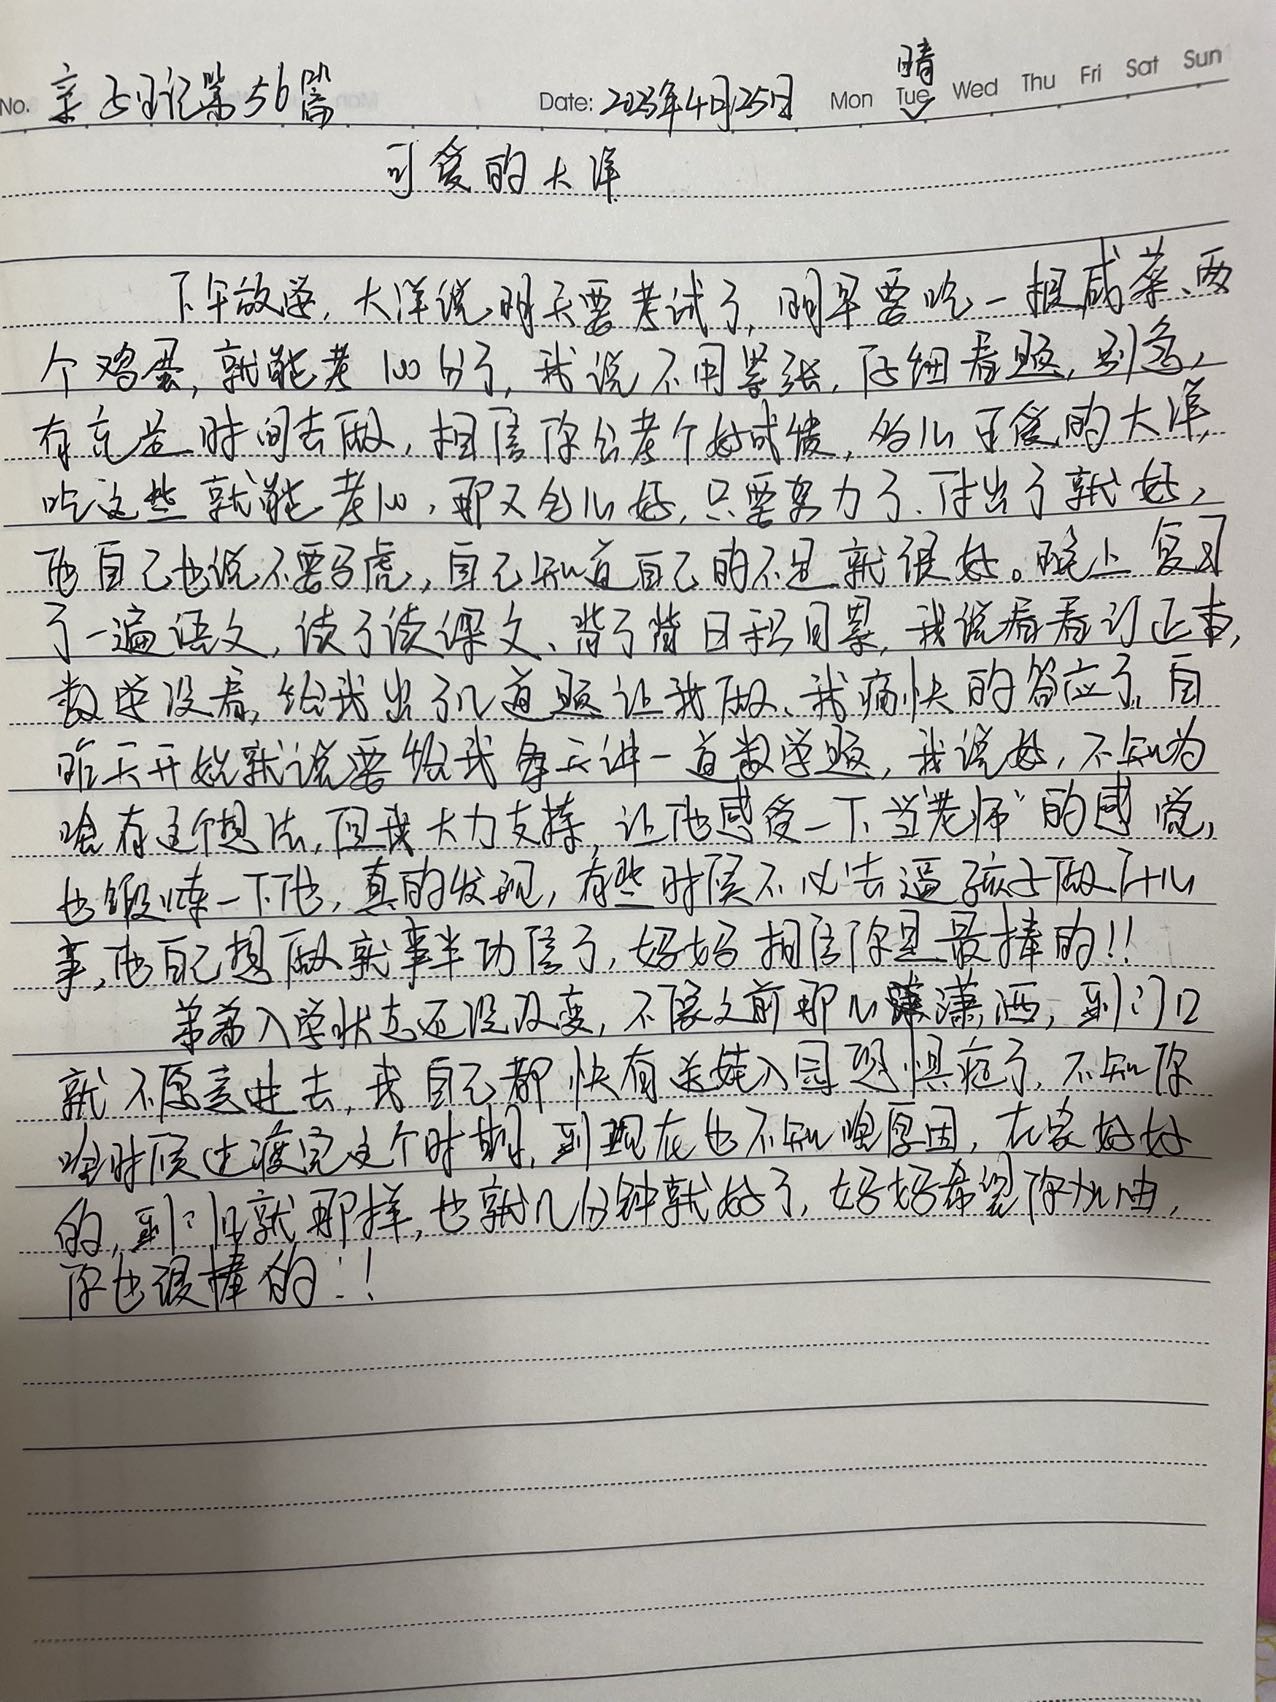 No. 亲子日记第56篇 Date: 2023年4月25日 晴 Mon Tue Wed Thu Fri Sat Sun
可爱的大洋
下午放学,大洋说明天要考试了,明早要吃一根咸菜、两
个鸡蛋,就能考100分了,我说不用紧张,仔细看题,别急,
有充足时间去做,相信你会考个好成绩,多么可爱的大洋,
吃这些就能考100,那又多么好,只要努力了、付出了就好,
他自己也说不要马虎,自己知道自己的不足就很好。晚上复习
了一遍语文,读了读课文、背了背日积月累,我说看看订正本,
数学没看,给我出了几道题让我做、我痛快的答应了,自
昨天开始就说要给我每天讲一道数学题,我说好,不知为
啥有这个想法,但我大力支持,让他感受一下当“老师”的感觉,
也锻炼一下他,真的发现,有些时候不必去逼孩子做什么
事,他自己想做就事半功倍了,好好相信你是最棒的!!
弟弟入学状态还没改变,不像之前那么潇洒,到门口
就不愿意进去,我自己都快有送娃入园恐惧症了,不知你
啥时候过渡完这个时期,到现在也不知啥原因,在家好好
的,到门口就那样,也就几分钟就好了,好好希望你加油,
你也很棒的!!